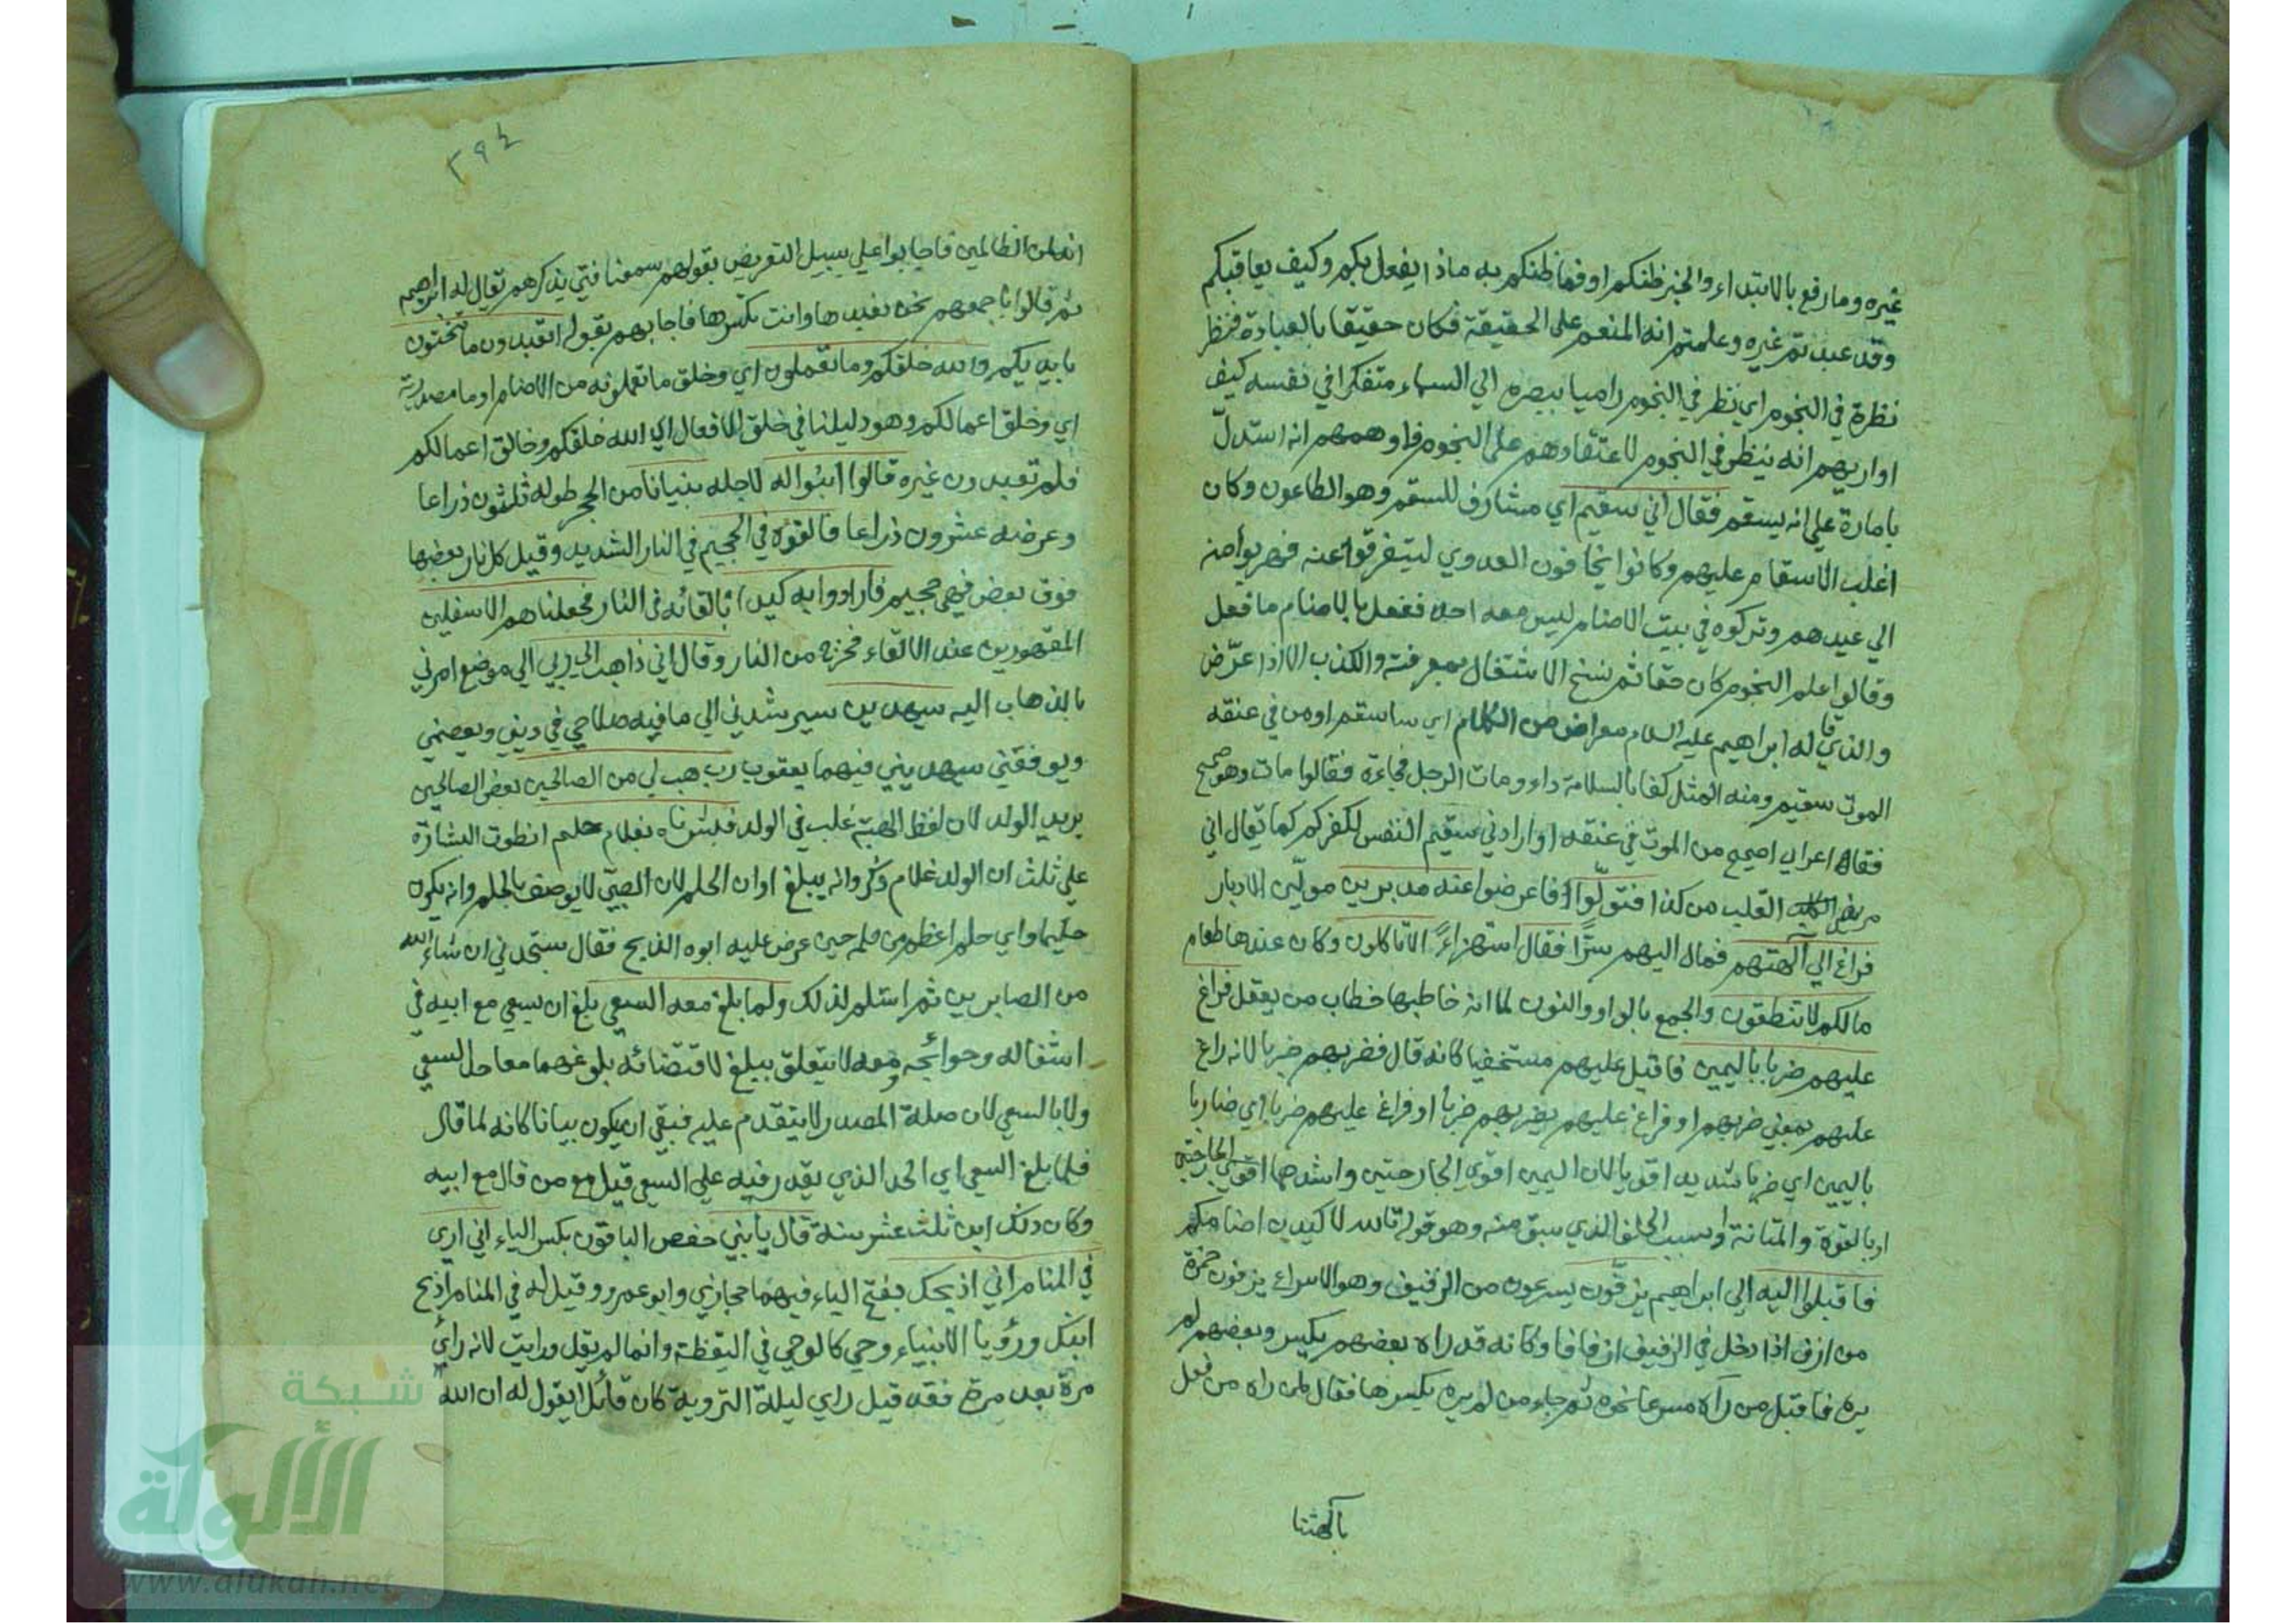 غيره وما رفع بالابتداء والخبر ظنكم او فما ظنكم به ماذا يفعل بكم وكيف يعاقبكم
وقد عبدتم غيره وعلمتم انه المنعم على الحقيقة فكان حقيقا بالعبادة فنظر
نظرة في النجوم اي نظر في النجوم راميا ببصره الي السماء متفكرا في نفسه كيف
او اريهم انه ينظر في النجوم لاعتقادهم علم النجوم فاوهمهم انه استدلّ
بامارة علي انه يسقم فقال اني سقيم اي مشارف للسقم وهو الطاعون وكان
اغلب الاسقام عليهم وكانوا يخافون العدوي ليتفرقوا عنه فهربوا منه
الي عيدهم وتركوه في بيت الاصنام ليس معه احد ففعل بالاصنام ما فعل
وقالوا علم النجوم كان حقا ثم نسخ الاشتغال بمعرفته والكذب الا اذا عرّض
والذي قاله ابراهيم عليه السلام معراض من الكلام اي ساسقم او من في عنقه
الموت سقيم ومنه المثل كفا بالسلامة داء ومات الرجل فجاءة فقالوا مات وهو صحيح
فقال اعرابي اصحيح من الموت في عنقه او ارادني سقيم النفس لكفركم كما يقال اني
مريض القلب من كذا فتولّوا فاعرضوا عنه مدبرين مولّين الادبار
فراغ الي آلهتهم فمال اليهم سرّا فقال استهزاءً الا تاكلون وكان عندها طعام
مالكم لا تنطقون والجمع بالواو والنون لما انه خاطبها خطاب من يعقل فراغ
عليهم ضربا باليمين فاقبل عليهم مستخفيا كانه قال فضربهم ضربا لانه راغ
عليهم بمعني ضربهم او فراغ عليهم يضربهم ضربا او فراغ عليهم ضربا اي ضاربا
باليمين اي ضربا شديدا قويا لان اليمين اقوي الجارحتين واشدهما اقوي الجارحتين
او بالقوة والمتانة او بسبب الحلف الذي سبق منه وهو قوله تالله لاكيدن اصنامكم
فاقبلوا اليه الي ابراهيم يزفّون يسرعون من الزفيف وهو الاسراع يزفون حمزة
من ازف اذا دخل في الزفيف ازفافا وكانه قد راه بعضهم يكسر وبعضهم لم
يره فاقبل من رآه مسرعا نحوه ثم جاء من لم يره يكسرها فقال لمن راه من فعل
بآلهتنا
٢٩٤
انه لمن الظالمين فاجابوا علي سبيل التعريض بقولهم سمعنا فتي يذكرهم يقال له ابراهيم
ثم قالوا باجمعهم نحن نعبدها وانت تكسرها فاجابهم بقوله اتعبدون ما تنحتون
بايديكم والله خلقكم وما تعملون اي وخلق ما تعملونه من الاصنام او ما مصدرية
اي وخلق اعمالكم وهو دليلنا في خلق الافعال اي الله خلقكم وخالق اعمالكم
فلم تعبدون غيره قالوا ابنوا له لاجله بنيانا من الحجر طوله ثلثون ذراعا
وعرضه عشرون ذراعا فالقوه في الجحيم في النار الشديد وقيل كل نار بعضها
فوق بعض فهي جحيم فارادوا به كيدا بالقائه في النار فجعلناهم الاسفلين
المقهورين عند الالقاء فخرج من النار وقال اني ذاهب الي ربي الي موضع امرني
بالذهاب اليه سيهدين سيرشدني الي ما فيه صلاحي في ديني ويعصمني
ويوفقني سيهديني فيهما يعقوب رب هب لي من الصالحين بعض الصالحين
يريد الولد لان لفظ الهبة غلب في الولد فبشرناه بغلام حليم انطوت البشارة
علي ثلث ان الولد غلام ذكر وانه يبلغ اوان الحلم لان الصبي لا يوصف بالحلم وانه يكون
حليما واي حلم اعظم من حلمه حين عرض عليه ابوه الذبح فقال ستجدني ان شاء الله
من الصابرين ثم استلم لذلك ولما بلغ معه السعي بلغ ان يسعي مع ابيه في
اشغاله وحوائجه ومعه لا يتعلق ببلغ لاقتضائه بلوغهما معا حد السعي
ولا بالسعي لان صلة المصدر لا يتقدم عليه فبقي ان يكون بيانا كانه لما قال
فلما بلغ السعي اي الحد الذي يقدر فيه علي السعي قيل مع من قال مع ابيه
وكان ذلك ابن ثلث عشر سنة قال يا بني حفص الباقون بكسر الياء اني اري
في المنام اني اذبحك بفتح الياء فيهما حجازي وابو عمرو وقيل له في المنام اذبح
ابنك ورؤيا الانبياء وحي كالوحي في اليقظة وانما لم يقل ورايت لانه رأي
مرة بعد مرة فقد قيل راي ليلة التروية كان قائلا يقول له ان الله
شبكة
الألوكة
www.alukah.net